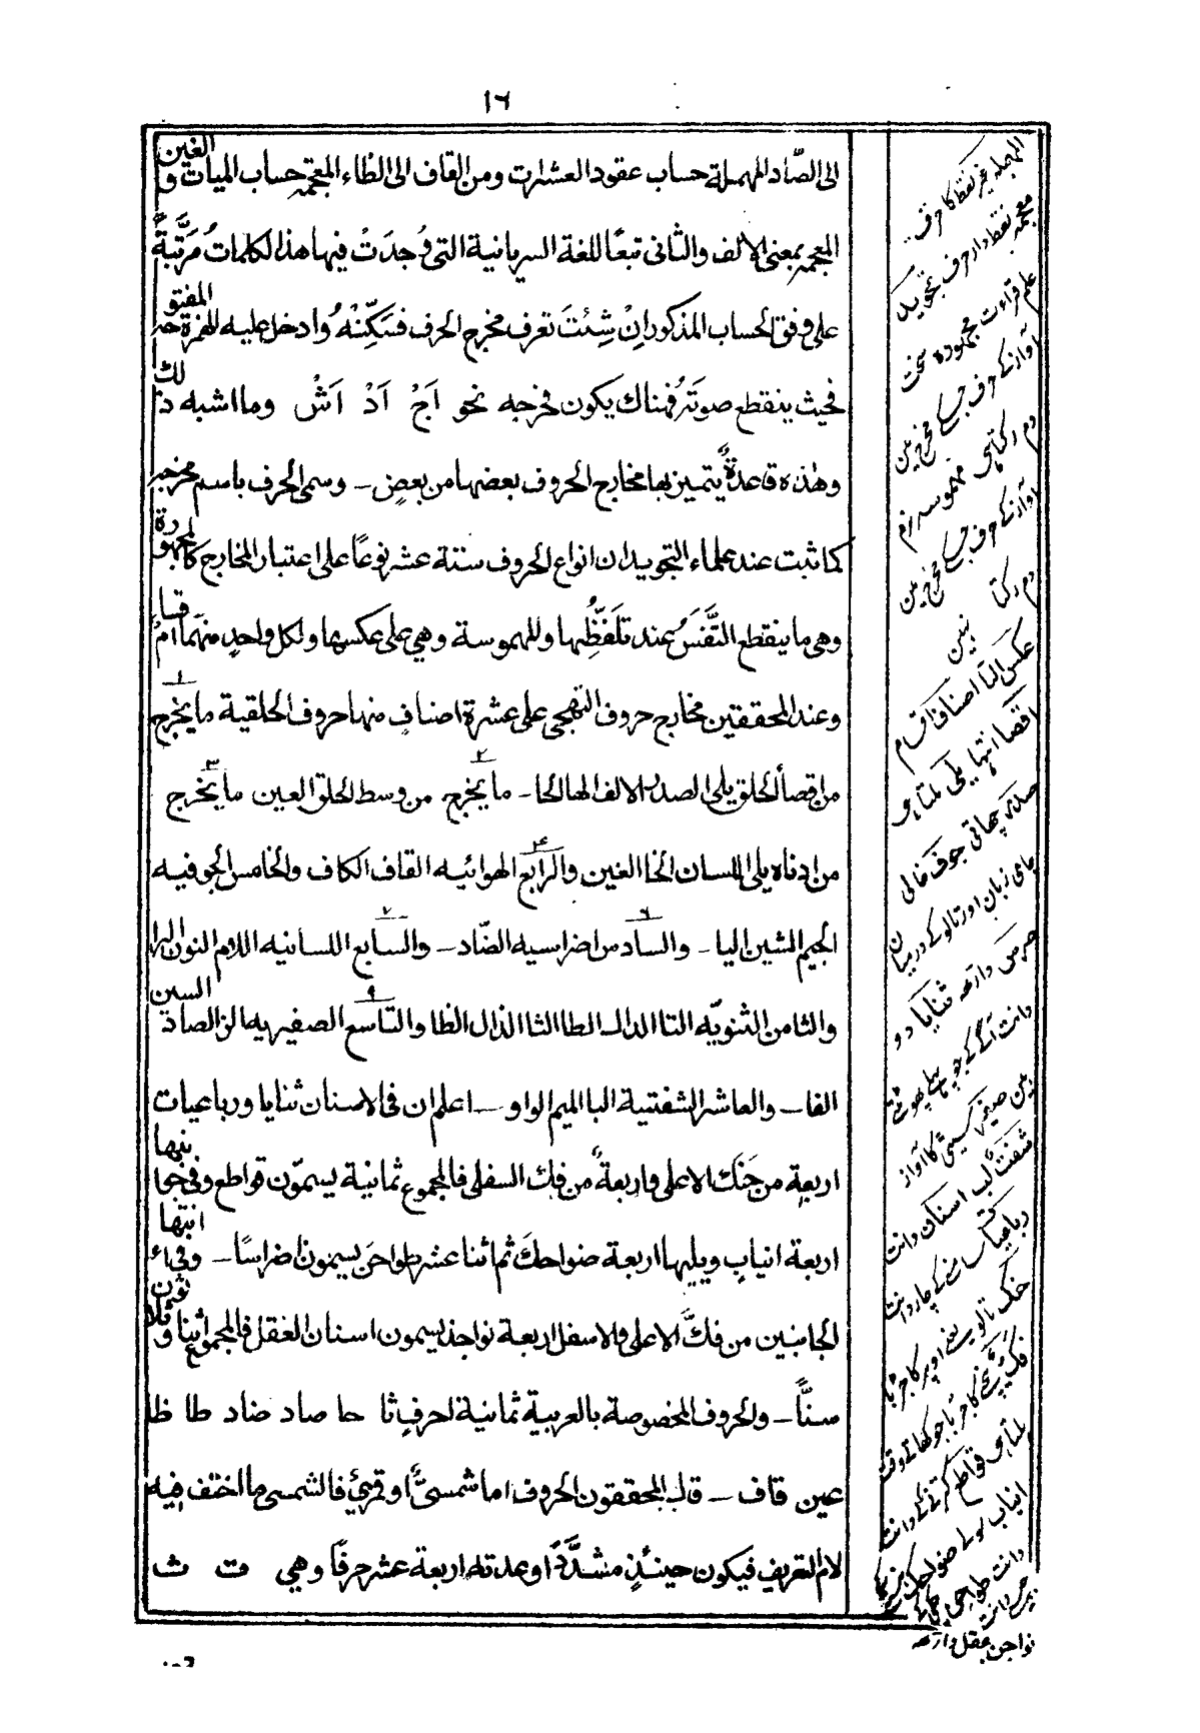 ١٦
الى الصّاد المهملة حساب عقود العشرات ومن القاف الى الظاء المعجمة حساب الميات و الغين
المعجمة بمعنى الالف والثانى تبعًا للغة السريانية التى وُجدَتْ فيها هذا الكلماتُ مُرَتَّبةً
على وفق الحساب المذكور اِنْ شِئتَ تعرف مخرج الحرف فسَكِّنْهُ وادخل عليه الهمزة المفتوحة
فحيث ينقطع صوتَهُ فهناك يكون مخرجه نحو اَجْ اَذْ اَشْ وما اشبه ذلك
وهٰذه قاعدةٌ يتميز بها مخارج الحروف بعضها من بعضٍ ــ وسمى الحرف باسم مخرجه
كما ثبت عند علماء التجويد ان انواع الحروف ستة عشر نوعًا على اعتبار المخارج كالمجهورة
وهى ما ينقطع التَّفَسُ عند تلَفّظُها وللهموسة وهي على عكسها ولكل واحدٍ منهَما اقسام
وعند المحققين مخارج حروف التهجى على عشرة اصنافٍ منها حروف الحلقية ما يخرج ١
من اقصأ الحلق يلى الصدر الالف الها الحا ــ ما يخرج ٢ من وسط الحلق العين ما يخرج ٣
من ادناه يلى اللسان الخا الغين والرابع ٤ الهوائيه القاف الكاف والخامس الجوفيه
الجيم الشين اليا ــ والسادس ٦ اضراسيه الضّاد ــ والسابع ٧ اللسانيه اللام النون الرا
والثامن الثنويّه التا الدال الطا الثا الذال الظا والتاسع ٩ الصفيريه الز الصاد السين
الفا ــ والعاشر الشفتية البا الميم الواو ــ اعلم ان فى الاسنان ثنايا ورباعيات
اربعةٍ من حَنَك الاعلى واربعةٌ من فك السفلى فالمجموع ثمانية يسمّون قواطع وفى جنبها
اربعة انيابٍ ويليها اربعة ضواحكَ ثم اثنا عشر طواحَن يسمون اضراسًا ــ وفى انتهاء
الجانبين من فكَّ الاعلى والاسفل اربعة نواجذ يسمون اسنان العقل فالمجموع اثنا وثلاثون
سنًّا ــ والحروف المخصوصة بالعربية ثمانية احرفٍ ثا حا صاد ضاد طا ظا
عين قاف ــ قال المحققون الحروف اما شمسىٌّ او قمرىٌ فالشمسى ما اختف فيه
لام التعريف فيكون حينئذٍ مشدَّدًا وعدته اربعة عشر حرفًا وهي ت ث
المهملہ غیر نقط کا حرف
معجمہ نقطدار حرف تجوید
علم قراءت مجہورہ سخت
آواز کے حرف جسکے مخرج مین
دم رکتا ہی مہموسہ نرم
آواز کے حرف جسکے مخرج مین
دم رکتا نہین
عکس الٹا اصناف اقسام
اقصا انتہا یلی ملتا ہے
صدر چھاتی جوف خالی
زبان اور تالو کے درمیان
ضرس داڑھ ثنایا دو
دانت آگے کے
مین صفیر سیٹی کا آواز
شفت لب اسنان دانت
رباعیات سامنے کے چار دانت
حنک تالو یعنے اوپر کا جبڑا
فک نیچے کا جبڑا جو کھاتے وقت
ہلتا ہی قواطع کترنے کے دانت
نواجذ عقل داڑھ